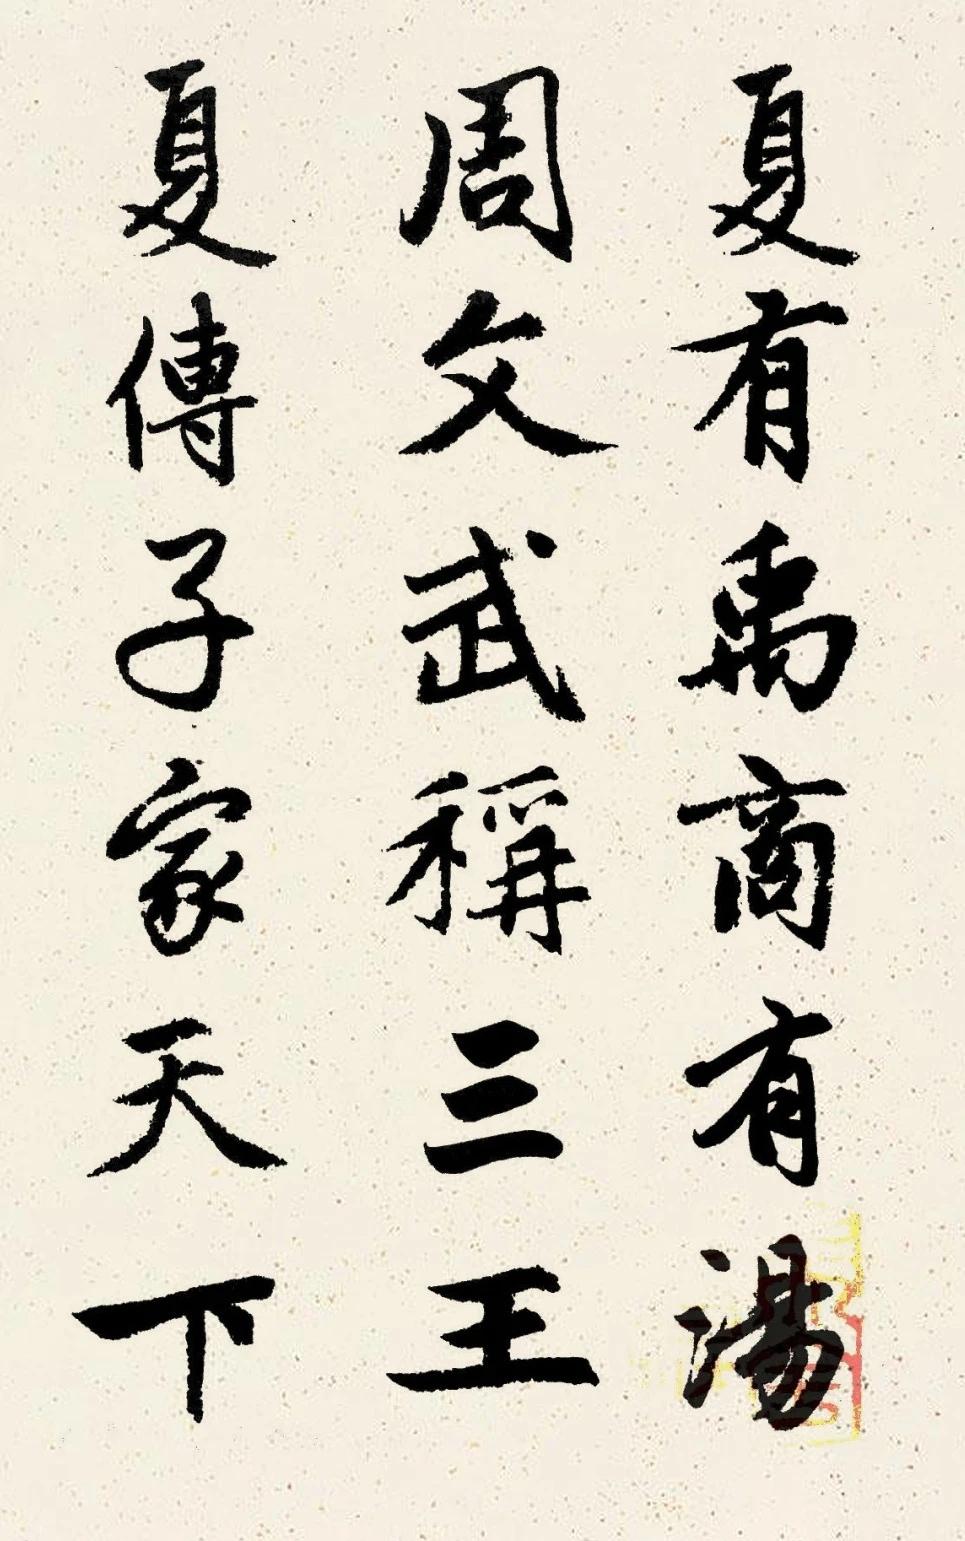 夏有禹商有湯
周文武稱三王
夏傳子家天下